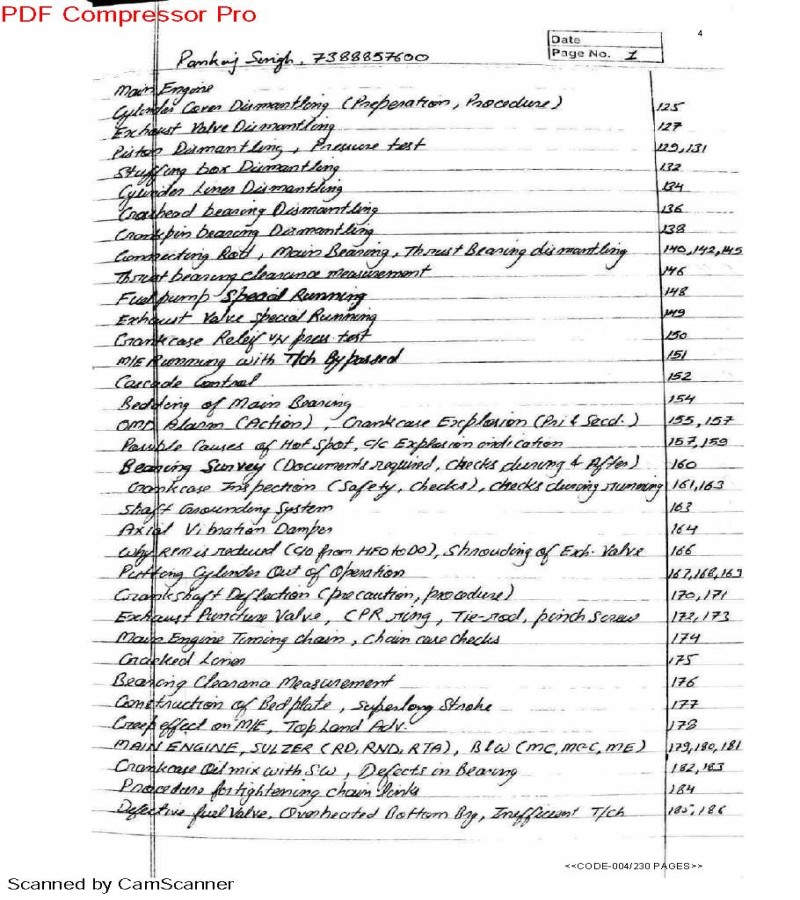 PDF Compressor Pro
4
Date
Page No. 1
Pankaj Singh, 7388857600
Main Engine
Cylinder Cover Dismantling (Preperation, Procedure) 125
Exhaust Valve Dismantling 127
Piston Dismantling, Pressure test 129,131
Stuffing box Dismantling 132
Cylinder Liner Dismantling 134
Crosshead bearing Dismantling 136
Crankpin bearing Dismantling 138
Connecting Rod, Main Bearing, Thrust Bearing dismantling 140,142,145
Thrust bearing clearance measurement 146
Fuel pump Special Running 148
Exhaust Valve special Running 149
Crankcase Releif v/v press test 150
M/E Running with T/ch Bypassed 151
Cascade Control 152
Bedding of Main Bearing 154
OMD Alarm (Action), Crankcase Explosion (Pri & Secd.) 155,157
Possible Causes of Hot Spot, C/C Explosion indication 157,159
Bearing Survey (Documents required, checks during & After) 160
Crankcase Inspection (Safety, Checks), checks during running 161,163
Shaft Grounding System 163
Axial Vibration Damper 164
Why RPM is reduced (C/O from HFO to DO), Shrouding of Exh. Valve 166
Putting Cylinder Out of Operation 167,168,169
Crankshaft Deflection (precaution, procedure) 170,171
Exhaust Puncture Valve, CPR ring, Tie-rod, pinch screw 172,173
Main Engine Timing chain, Chain case checks 174
Cracked Liner 175
Bearing Clearana Measurement 176
Construction of Bedplate, Superlong Stroke 177
Creep effect on M/E, Top Land Adv. 178
MAIN ENGINE, SULZER (RD, RND, RTA), B&W (MC, MC-C, ME) 179,180,181
Crankcase Oil mix with SW, Defects in Bearing 182,183
Procedure for tightening chain links 184
Defective fuel Valve, Overheated Bottom Brg, Inefficient T/ch 185,186
<<CODE-004/230 PAGES>>
Scanned by CamScanner